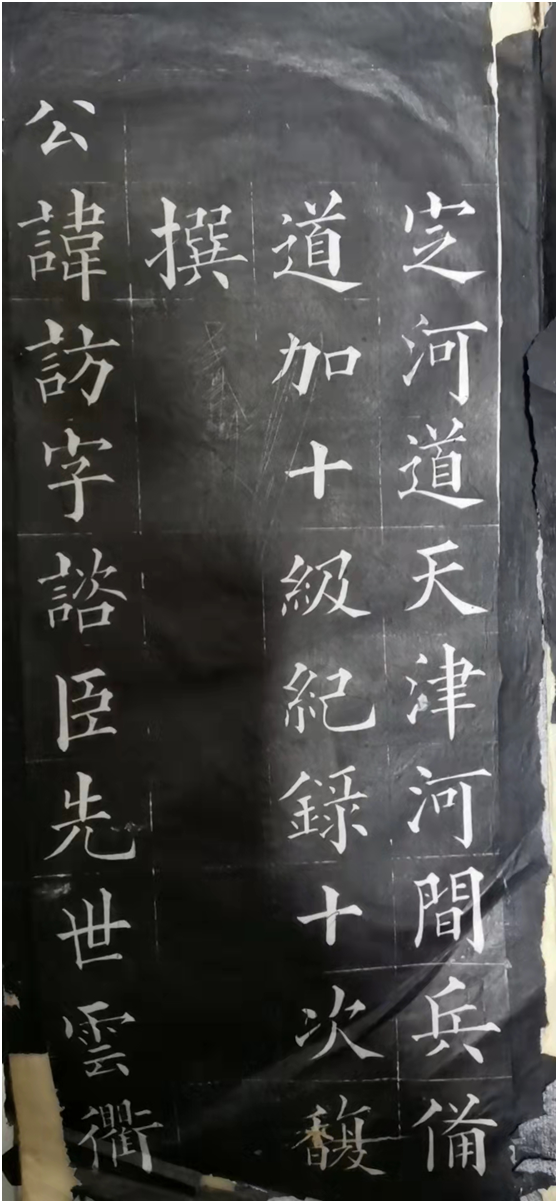 㝎河道天津河間兵備
道加十級紀錄十次馥
撰
公諱訪字諮臣先世雲衢